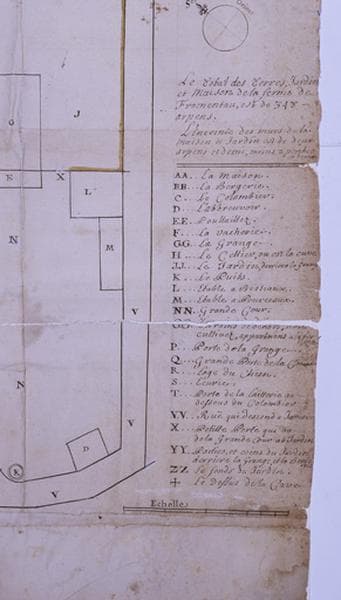 Le total des Terres, Jardin
et Maison de la ferme de
Fromentau, est de 348
arpens.
L'enceinte des murs de la
maison et Jardin est de deux
arpens et demi, moins
AA.. La Maison.
BB.. La Bergerie.
C.. Le Colombier.
D.. L'abbreuvoir.
EE.. Poullailler.
F.. La vacherie.
GG.. La Grange.
H.. Le Cellier, ou est la cuve
JJ.. Le Jardin, derriere la Grange
K.. Le Puits.
L.. Etable a Bestiaux.
M.. Etable a Pourceaux.
NN.. Grande Cour.
P.. Porte de la Grange.
Q.. Grande Porte de la
R.. Loge du Chien.
S.. Ecurie.
T.. Porte de la laitterie au
dessous du Colombier.
VV.. Rue qui descend a
X.. Petitte Porte qui va
de la Grande Cour au Jardin
YY.. du Jardin
derriere la Grange, et la
ZZ.. Le fonds du Jardin.
+.. Le Dessus de la Cave
Echelle
G
J
E
X
L
N
M
V
N
V
D
K
V